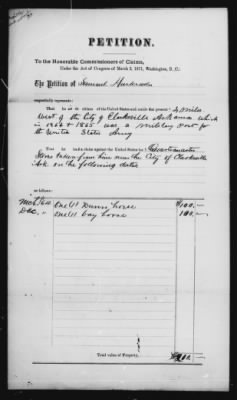 PETITION.
To the Honorable Commissioners of Claims,
Under the Act of Congress of March 3, 1871, Washington, D. C.:
The Petition of Samuel
respectfully represents:
That he is a citizen of the United States and resided 4 Miles
West of the City of Clarksville Arkansas which
in 1864 & 1865 was a Military Post for
the United States Army
That he has a claim against the United States for Quartermaster
Stores taken from him near the City of Clarksville
Ark on the following dates
as follows:
One Horse $100,—
Dec, " One Bay horse 100,—
Total value of Property,